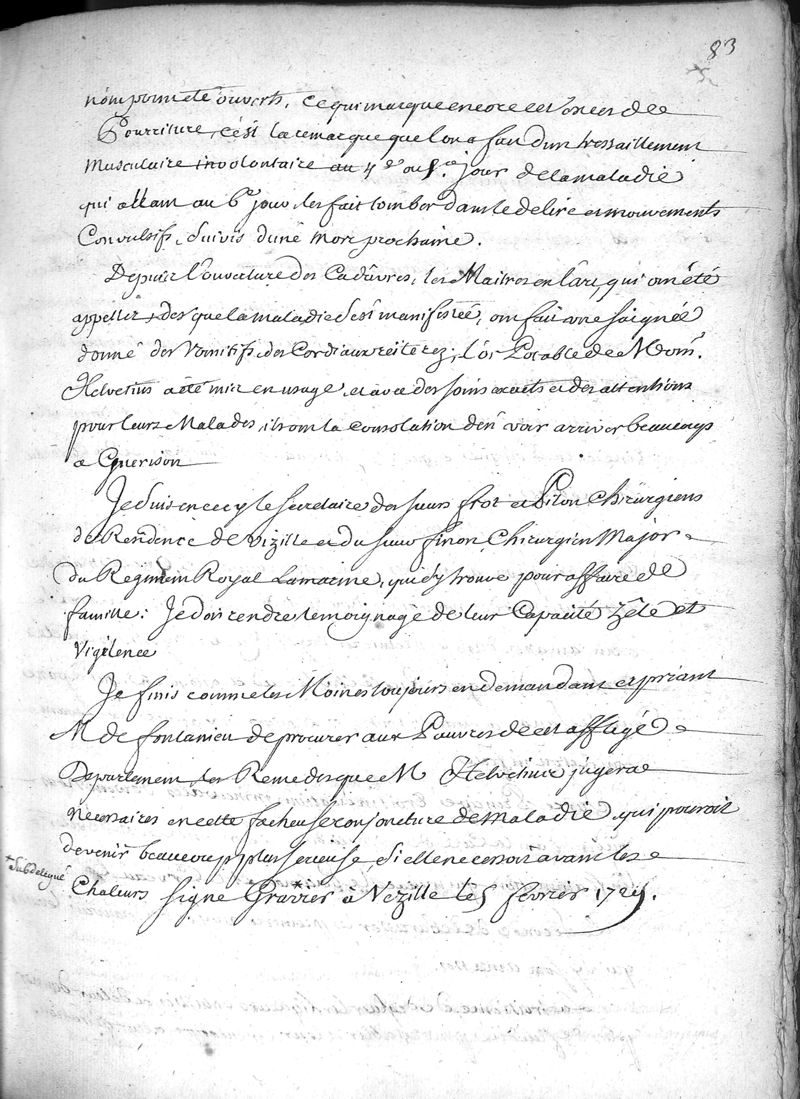 83
n'ont point été ouverts, ce qui marque encore cet excès de
Pourriture, c'est la remarque que l'on a fait d'un tressaillement
Musculaire involontaire au 4e ou 5e jour de la maladie
qui allant au 6e jour les fait tomber dans le delire et mouvements
Convulsifs, suivis d'une mort prochaine.
Depuis l'ouverture des Cadâvres, les Maitres en l'art, qui ont été
appellez, des que la maladie s'est manifestée, ont fait une saignée
donné des Vomitifs, des Cordiaux reiterez, l'or Potable de M.
Helvetius a été mis en usage, et avec des soins exacts et des attentions
pour leurs Malades, ils ont la consolation d'en voir arriver beaucoup
a Guerison
Je suis en cecy le secretaire des sieurs frot et Pilon Chirurgiens
de Residence de Vizille et du sieur finon Chirurgien Major
du Regiment Royal Lamarine, qui s'y trouve pour affaire de
famille: Je dois rendre temoignage de leur Capacité Zêle et
Vigilence
Je finis comme les Moines toujours en demandant et priant
M de fontanieu de procurer aux Pauvres de cet affligé
Departement les Remedes que M Helvetius jugera
necessaires en cette facheuse conjoncture de maladie qui pouroit
devenir beaucoup plus serieuse, si elle ne cessoit avant les
+ Subdelegué
Chaleurs signé Gravier + à Vezille le 5 fevrier 172